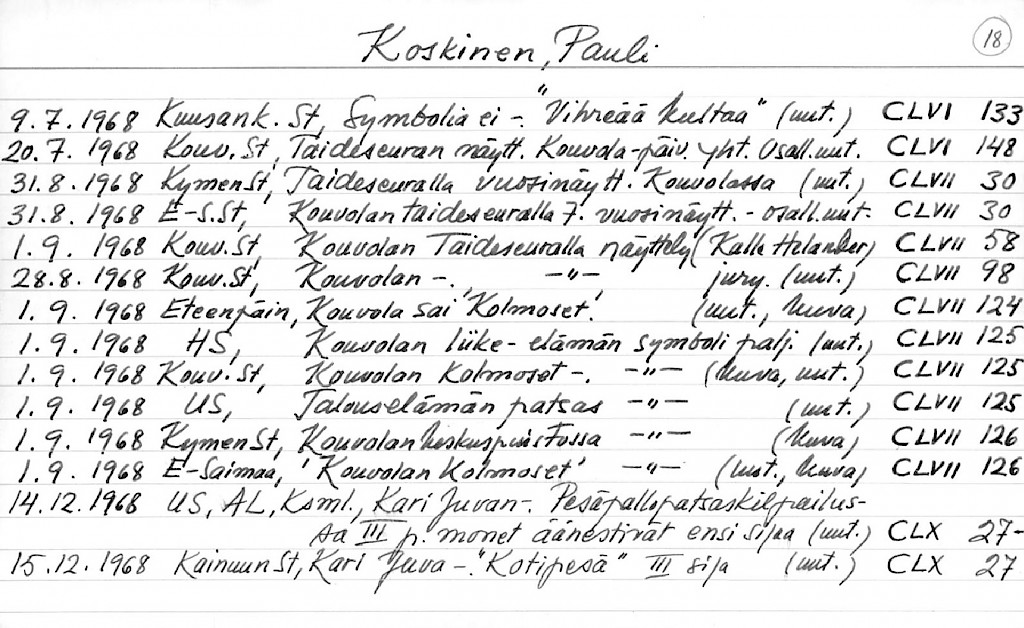 Koskinen, Pauli
18
9.7.1968 Kuusank. St, Symbolia ei -. "Vihreää kultaa" (uut.) CLVI 133
20.7.1968 Kouv. St, Taideseuran näytt. Kouvola-päiv. yht. Osall. uut. CLVI 148
31.8.1968 Kymen St, Taideseuralla vuosinäytt. Kouvolassa (uut.) CLVII 30
31.8.1968 E-S.St, Kouvolan taideseuralla 7. vuosinäytt. - osall. uut. CLVII 30
1.9.1968 Kouv. St, Kouvolan Taideseuralla näyttely (Kalle Helander) CLVII 58
28.8.1968 Kouv. St, Kouvolan -. -"- jury. (uut.) CLVII 98
1.9.1968 Eteenpäin, Kouvola sai 'Kolmoset'. (uut., kuva) CLVII 124
1.9.1968 HS, Kouvolan liike-elämän symboli palj. (uut.) CLVII 125
1.9.1968 Kouv. St, Kouvolan Kolmoset -. -"- (kuva, uut.) CLVII 125
1.9.1968 US, Talouselämän patsas -"- (uut.) CLVII 125
1.9.1968 Kymen St, Kouvolan keskuspuistossa -"- (kuva) CLVII 126
1.9.1968 E-Saimaa, 'Kouvolan Kolmoset' -"- (uut., kuva) CLVII 126
14.12.1968 US, AL, Ksml., Kari Juvan -. Pesäpallopatsaskilpailus-
sa III p. monet äänestivät ensi sijaa (uut.) CLX 27-
15.12.1968 Kainuun St, Kari Juva -. "Kotipesä" III sija (uut.) CLX 27